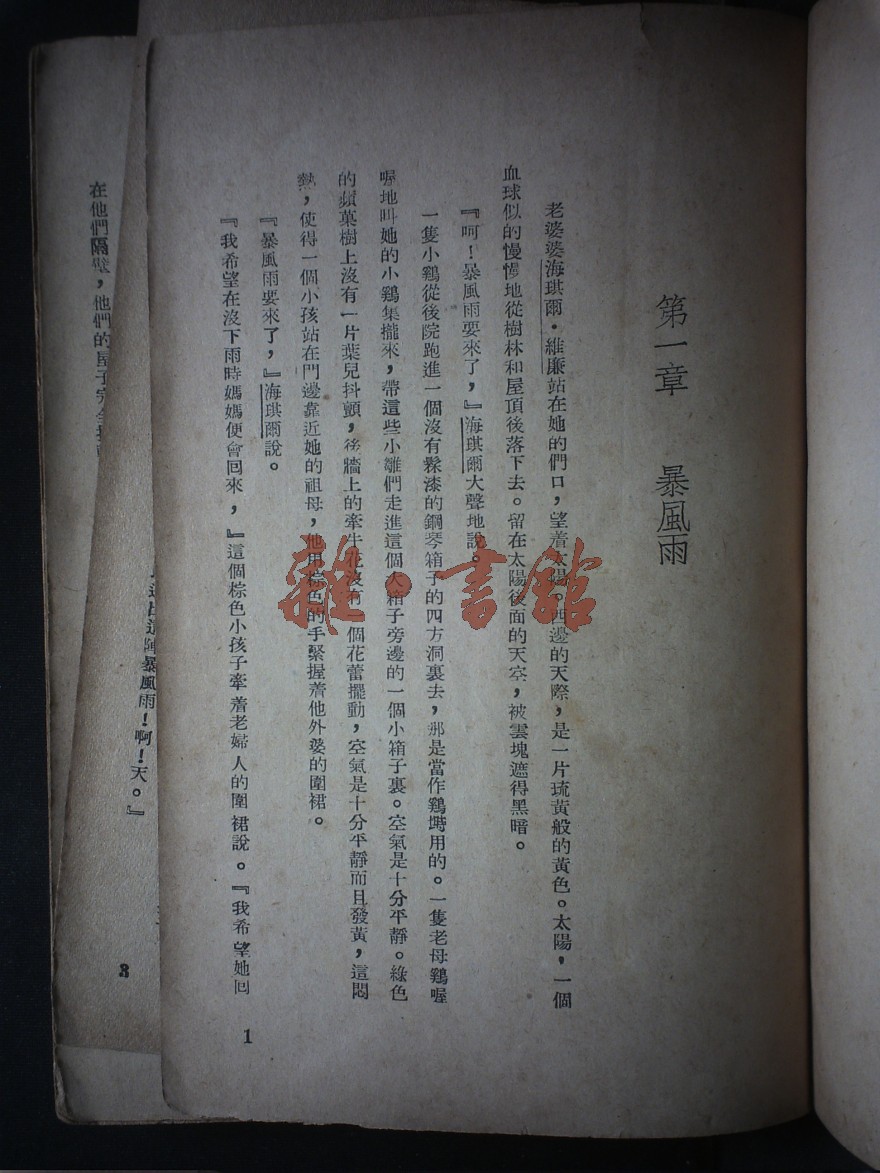 第一章　暴風雨
老婆婆海琪爾·維廉站在她的們口，望着太陽。西邊的天際，是一片琉黃般的黃色。太陽，一個
血球似的慢慢地從樹林和屋頂後落下去。留在太陽後面的天空，被雲塊遮得黑暗。
『呵！暴風雨要來了，』海琪爾大聲地說。
一隻小鷄從後院跑進一個沒有髹漆的鋼琴箱子的四方洞裏去，那是當作鷄塒用的。一隻老母鷄喔
喔地叫她的小鷄集攏來，帶這些小雛們走進這個大箱子旁邊的一個小箱子裏。空氣是十分平靜。綠色
的蘋菓樹上沒有一片葉兒抖顫，後牆上的牽牛花沒有一個花蕾擺動，空氣是十分平靜而且發黃，這悶
熱，使得一個小孩站在門邊靠近她的祖母，他用棕色的手緊握着他外婆的圍裙。
『暴風雨要來了，』海琪爾說。
『我希望在沒下雨時媽媽便會回來，』這個棕色小孩子牽着老婦人的圍裙說。『我希望她回
1
暴風雨！啊！天。』
3
在他們隔壁，他們的屋子完全
雜·書館